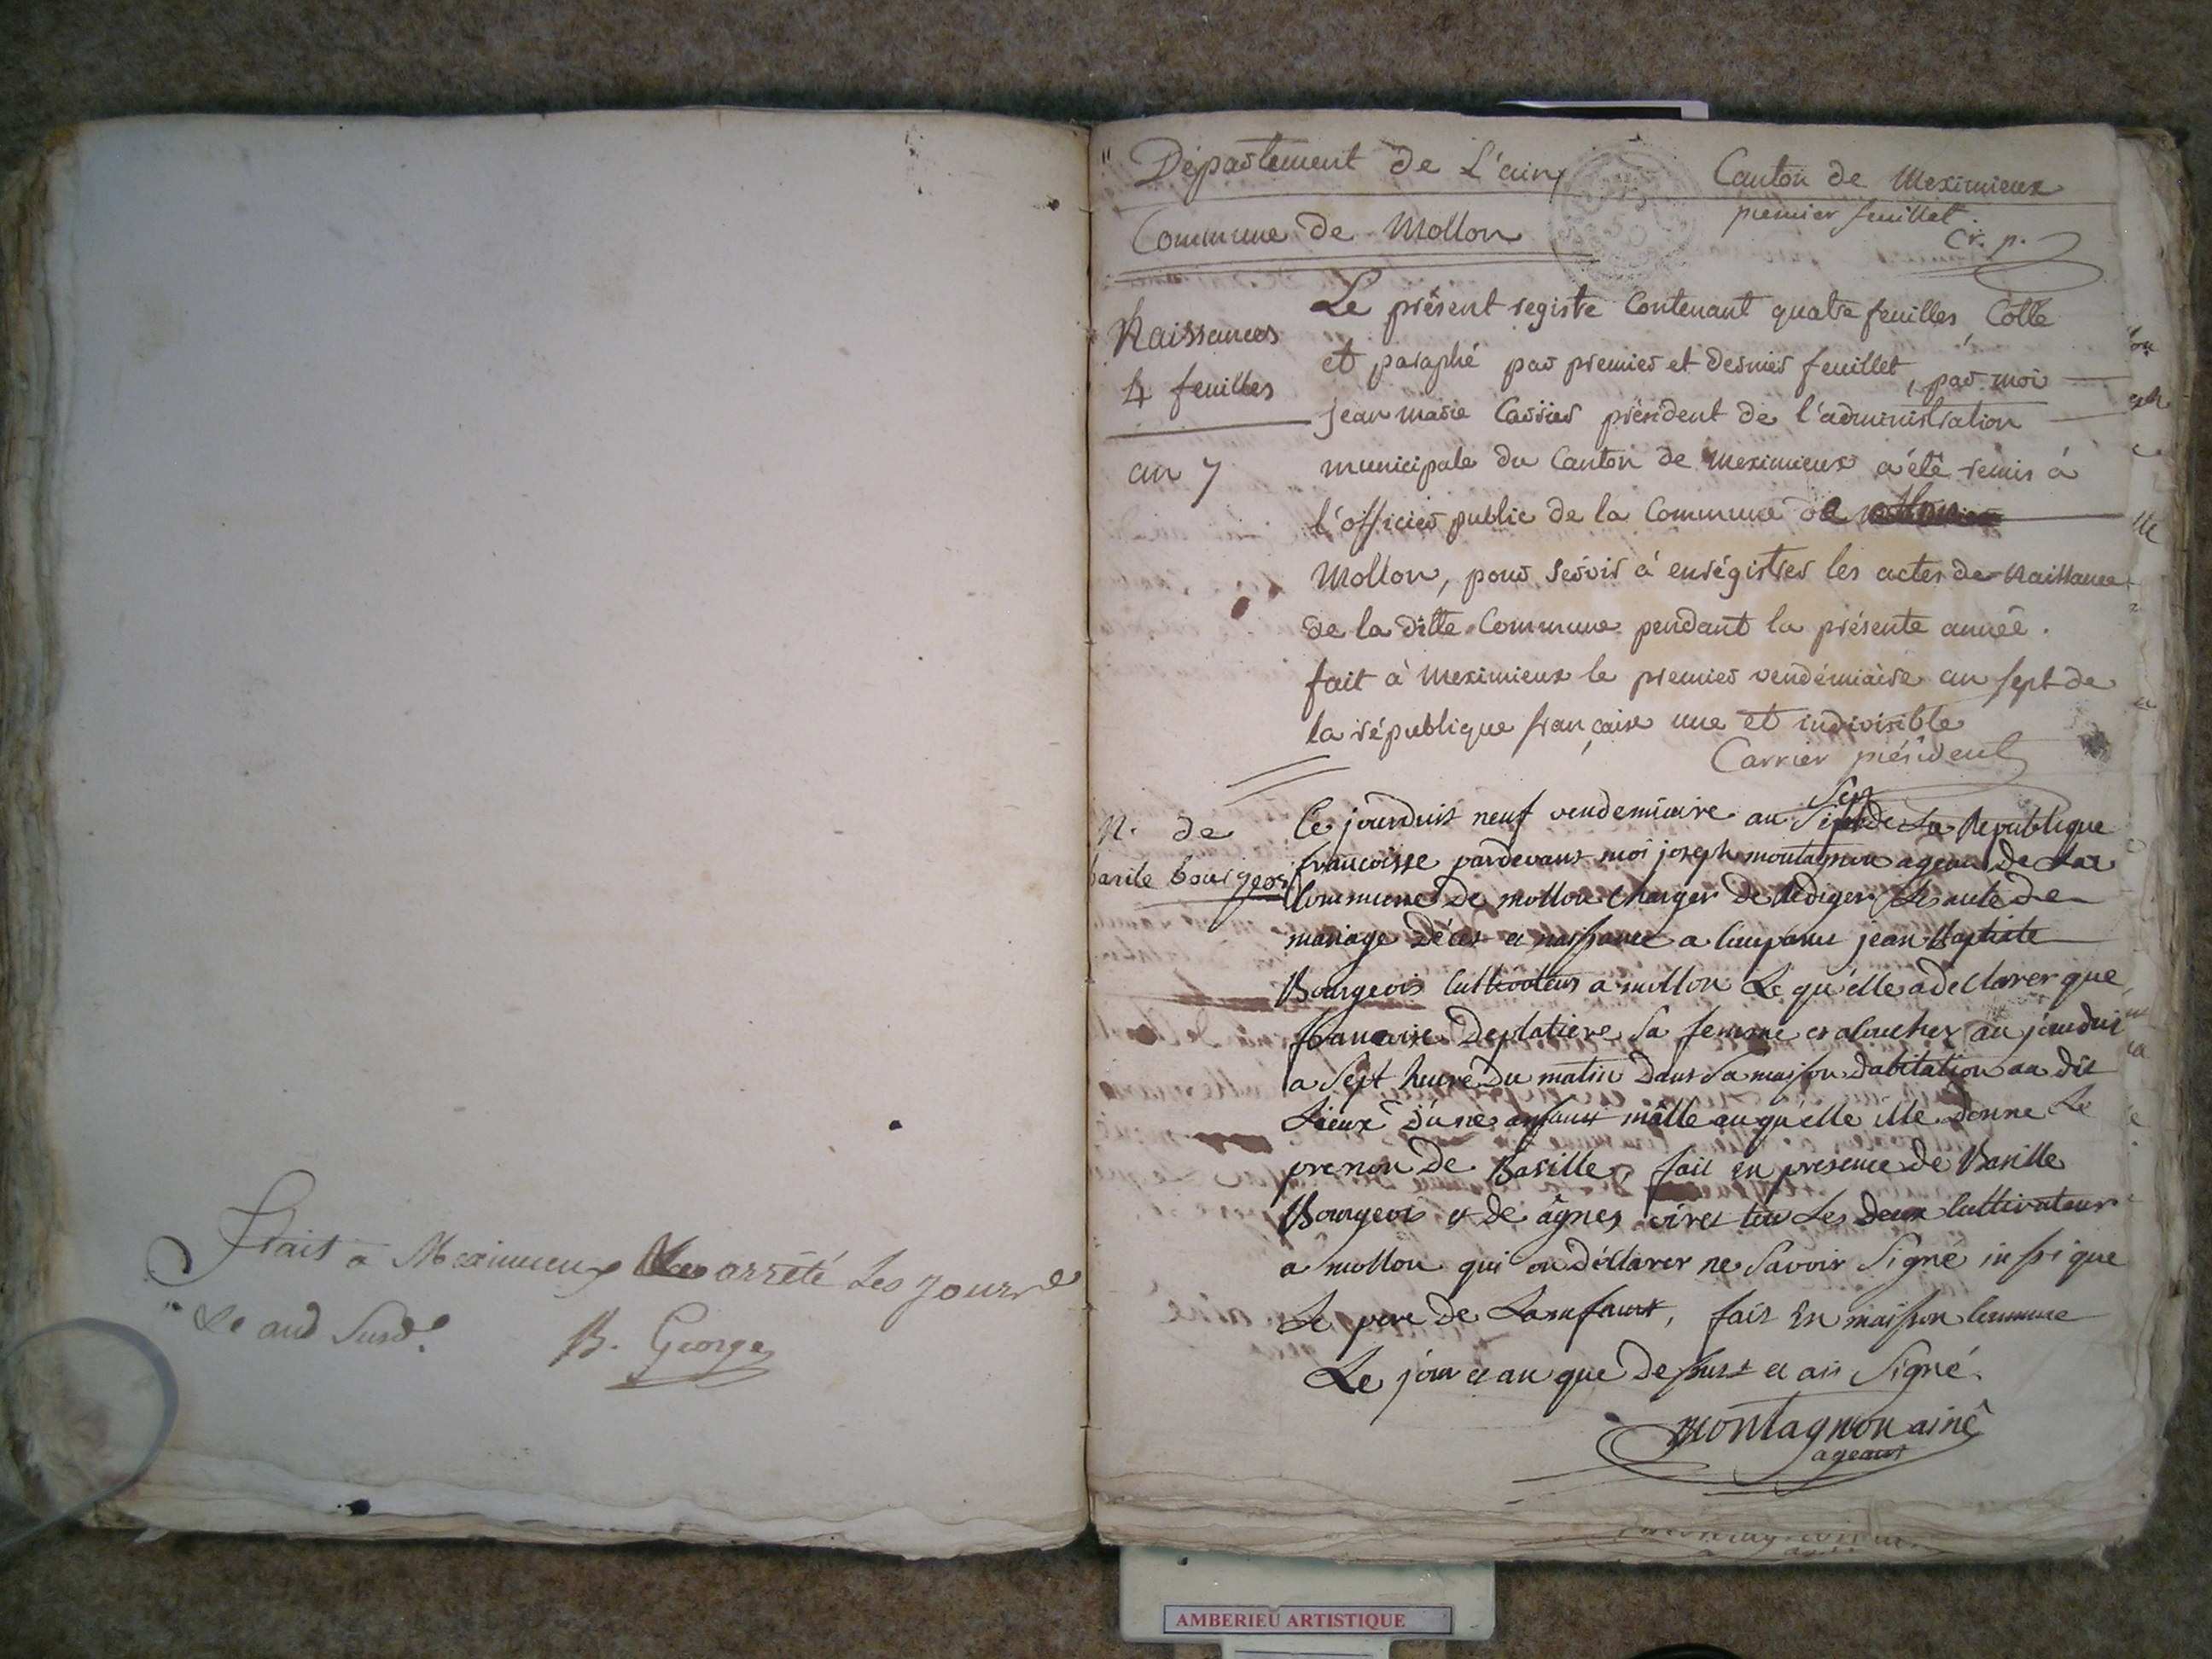 Fait à Meximieux arrêté Les jour
& and Susd.
B. George
Département de L'ain
Canton de Meximieux
Commune de Mollon
premier feuillet.
Cr. p.
Naissances
4 feuilles
an 7
Le présent registre Contenant quatre feuilles, Cotté
et paraphé par premier et dernier feuillet, par moi
jean marie Carrier président de l'administration
municipale du Canton de Meximieux a été remis à
l'officier public de la Commune de
Mollon, pour servir à enrégistrer les actes de Naissance
de la ditte Commune pendant la présente année.
fait à Meximieux le premier vendémiaire an sept de
la république française une et indivisible
Carrier président
N. de
basile bourgeois
Ce jourduit neuf vendemiaire an Sept de La Republique
francoisse pardevant moi joseph montagnon ageant de La
Commune De mollon Charger De Rediger Les acte De
mariage Décès et naissance a Comparu jean Baptiste
Bourgeois Cultivateur a mollon Le qu'elle a declarer que
francoise Deplatiere Sa femme es acoucher au jourdui
a Sept heure Du matin Dans Sa maison Dabitation au dit
Lieux D'une anfant mâlle au qu'elle ille donne Le
prenon De Basille, fait en presence de Basille
Bourgeois et De âgnes viret tou Les Deux Cultivateur
a mollon qui on déclarer ne Savoir Signé insi que
Le pere De Lanfant, fait En maison Commune
Le jour et an que Dessus et ais Signé.
montagnon ainé
ageant
AMBERIEU ARTISTIQUE